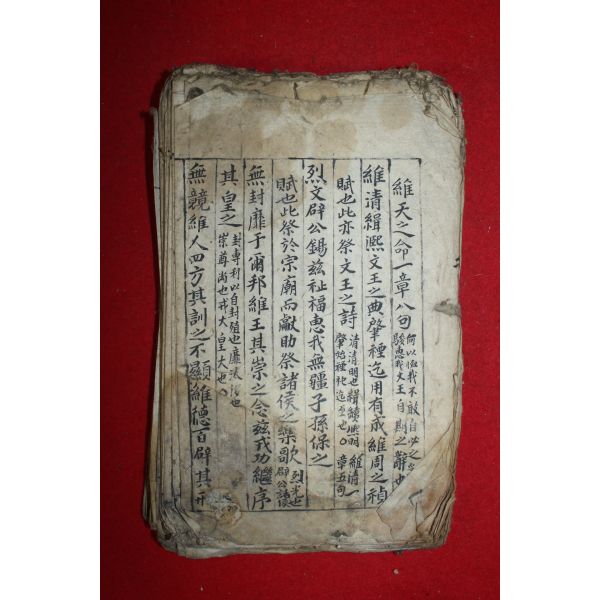 維天之命一章八句 何以恤我不敢自必之
駿惠我文王自期之辭也
維清緝熙文王之典肇禋迄用有成維周之禎
賦也此亦祭文王之詩 清清明也緝續熙明
肇始禋祀迄至也〇 維清一
章五句
烈文辟公錫玆祉福惠我無疆子孫保之
賦也此祭於宗廟而獻助祭諸侯之樂歌 烈光也
辟公諸侯
無封靡于爾邦維王其崇之念玆戎功繼序
其皇之 封專利以自封殖也靡汰侈也
崇尊尚也戎大皇大也〇
無競維人四方其訓之不顯維德百辟其刑